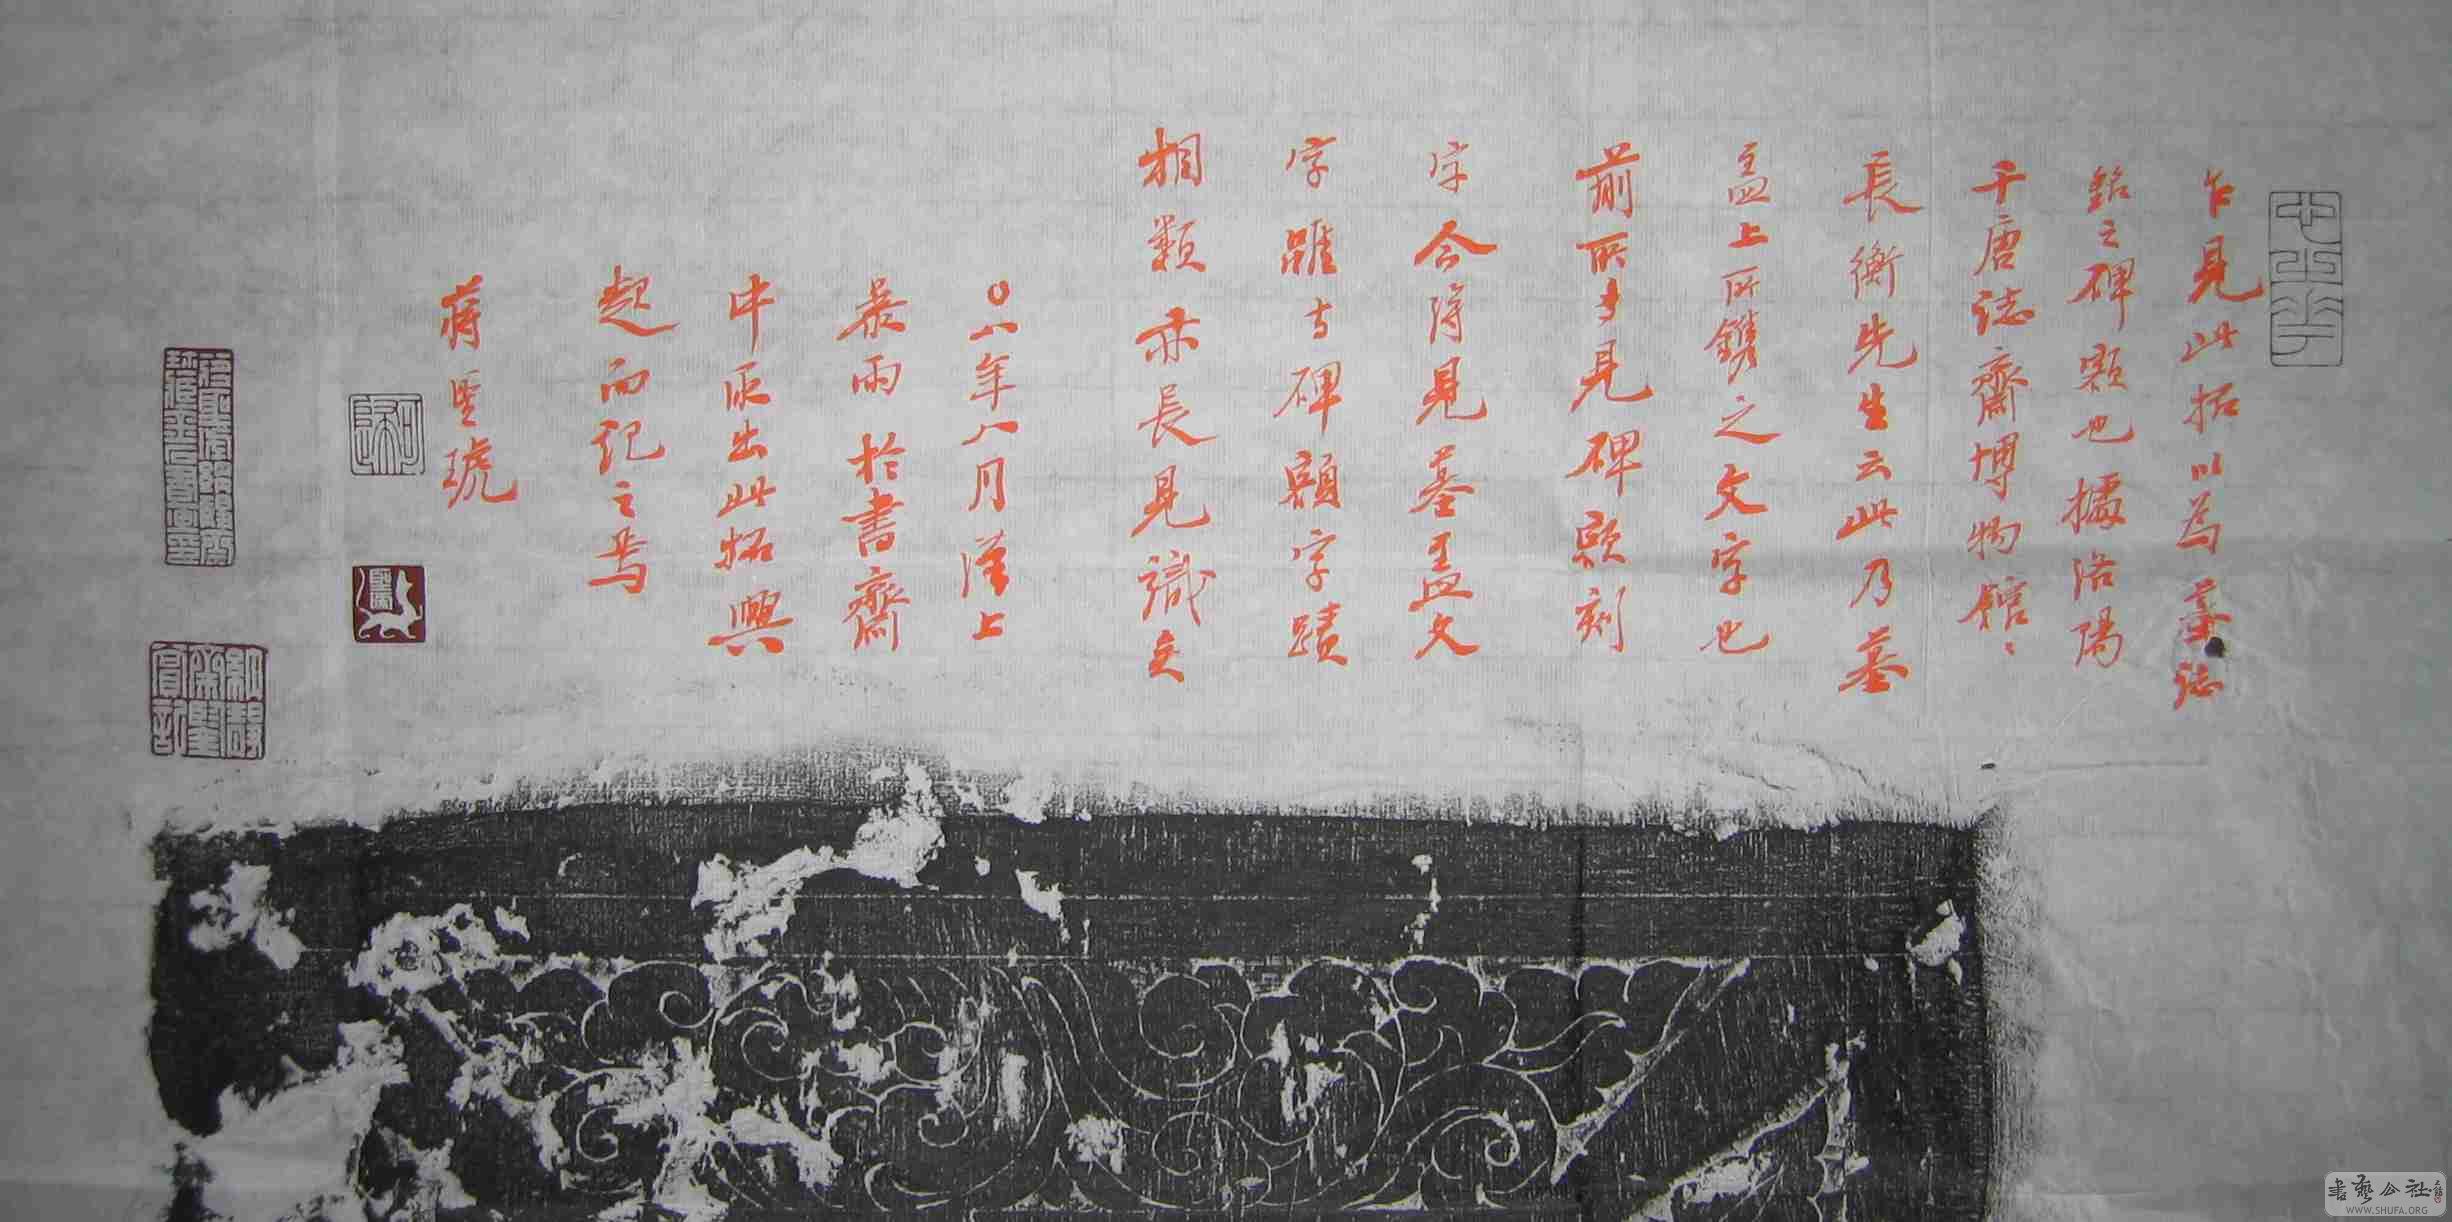 乍見此拓以為墓誌
銘之碑額也據洛陽
千唐誌齋博物館〻
長衡先生云此乃墓
蓋上所鐫之文字也
前所多見碑額刻
字今得見墓蓋文
字雖与碑額字蹟
相類亦長見識矣
〇八年八月漢上
暴雨於書齋
中匝出此拓興
起而記之焉
蔣聖琥
書藝公社
WWW.SHUFA.ORG